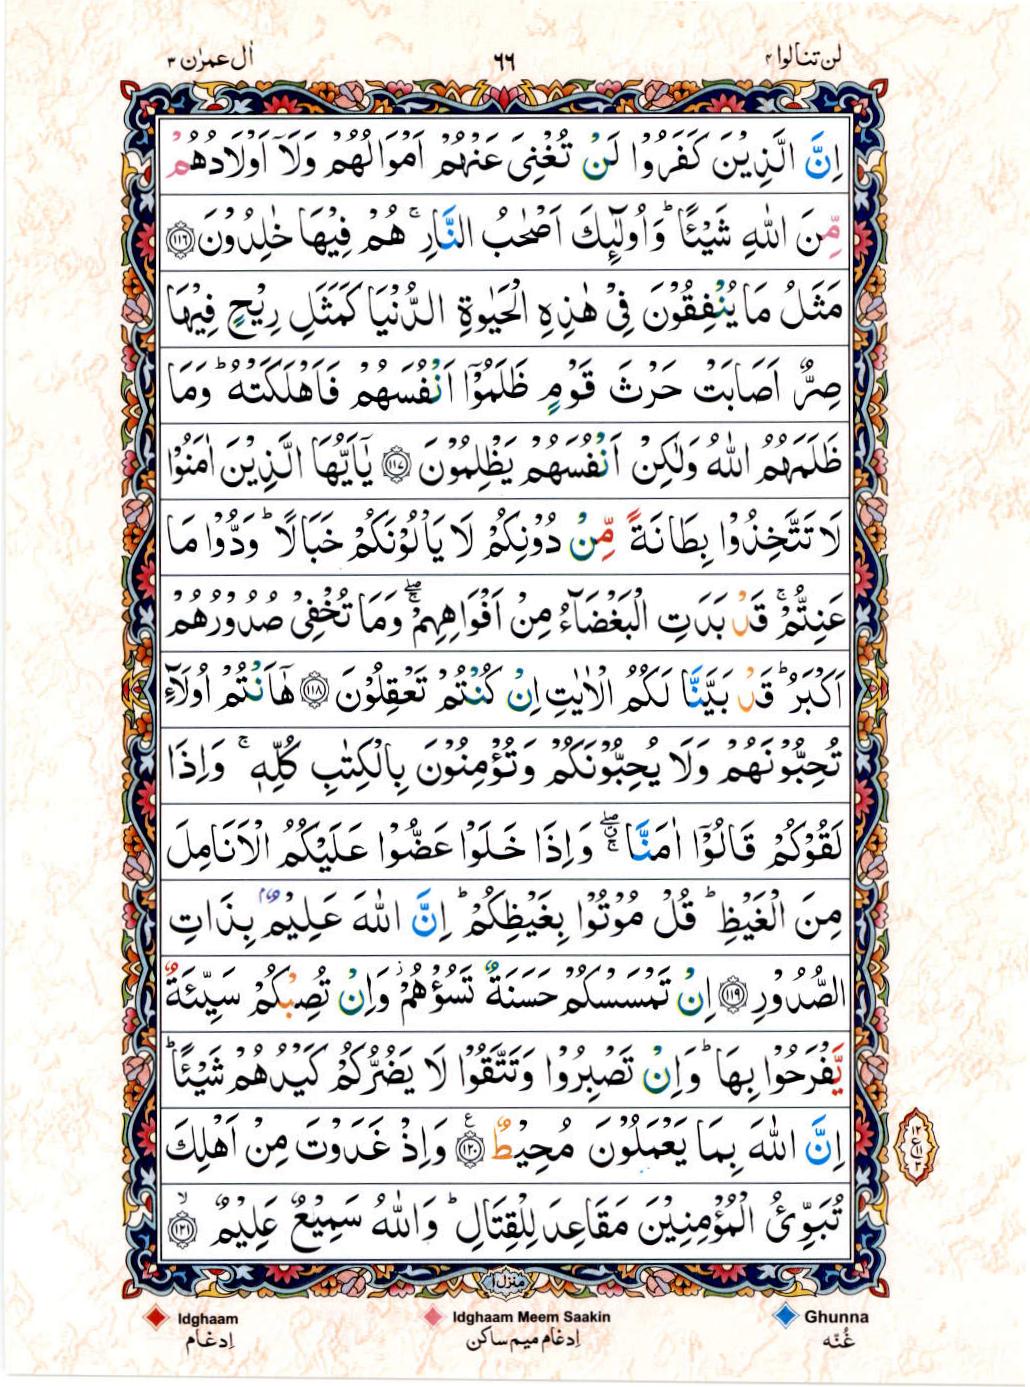 لن تنالوا ۴ ۶۶ اٰل عمرٰن ۳
اِنَّ الَّذِيْنَ كَفَرُوْا لَنْ تُغْنِىَ عَنْهُمْ اَمْوَالُهُمْ وَلَاۤ اَوْلَادُهُمْ
مِّنَ اللّٰهِ شَيْـًٔا ؕ وَاُولٰٓئِكَ اَصْحٰبُ النَّارِ ۚ هُمْ فِيْهَا خٰلِدُوْنَ ﴿۱۱۶﴾
مَثَلُ مَا يُنْفِقُوْنَ فِيْ هٰذِهِ الْحَيٰوةِ الدُّنْيَا كَمَثَلِ رِيْحٍ فِيْهَا
صِرٌّ اَصَابَتْ حَرْثَ قَوْمٍ ظَلَمُوْۤا اَنْفُسَهُمْ فَاَهْلَكَتْهُ ؕ وَمَا
ظَلَمَهُمُ اللّٰهُ وَلٰكِنْ اَنْفُسَهُمْ يَظْلِمُوْنَ ﴿۱۱۷﴾ يٰۤاَيُّهَا الَّذِيْنَ اٰمَنُوْا
لَا تَتَّخِذُوْا بِطَانَةً مِّنْ دُوْنِكُمْ لَا يَاْلُوْنَكُمْ خَبَالًا ؕ وَدُّوْا مَا
عَنِتُّمْ ۚ قَدْ بَدَتِ الْبَغْضَآءُ مِنْ اَفْوَاهِهِمْ ۖۚ وَمَا تُخْفِيْ صُدُوْرُهُمْ
اَكْبَرُ ؕ قَدْ بَيَّنَّا لَكُمُ الْاٰيٰتِ اِنْ كُنْتُمْ تَعْقِلُوْنَ ﴿۱۱۸﴾ هٰۤاَنْتُمْ اُولَآءِ
تُحِبُّوْنَهُمْ وَلَا يُحِبُّوْنَكُمْ وَتُؤْمِنُوْنَ بِالْكِتٰبِ كُلِّهٖ ۚ وَاِذَا
لَقُوْكُمْ قَالُوْۤا اٰمَنَّا ۖۚ وَاِذَا خَلَوْا عَضُّوْا عَلَيْكُمُ الْاَنَامِلَ
مِنَ الْغَيْظِ ؕ قُلْ مُوْتُوْا بِغَيْظِكُمْ ؕ اِنَّ اللّٰهَ عَلِيْمٌۢ بِذَاتِ
الصُّدُوْرِ ﴿۱۱۹﴾ اِنْ تَمْسَسْكُمْ حَسَنَةٌ تَسُؤْهُمْ ؗ وَاِنْ تُصِبْكُمْ سَيِّئَةٌ
يَّفْرَحُوْا بِهَا ؕ وَاِنْ تَصْبِرُوْا وَتَتَّقُوْا لَا يَضُرُّكُمْ كَيْدُهُمْ شَيْـًٔا ؕ
اِنَّ اللّٰهَ بِمَا يَعْمَلُوْنَ مُحِيْطٌ ﴿۱۲۰﴾ ع وَاِذْ غَدَوْتَ مِنْ اَهْلِكَ
تُبَوِّئُ الْمُؤْمِنِيْنَ مَقَاعِدَ لِلْقِتَالِ ؕ وَاللّٰهُ سَمِيْعٌ عَلِيْمٌ ﴿۱۲۱﴾ ۙ
منزل ۱
Idghaam Idghaam Meem Saakin Ghunna
اِدغام اِدغام میم ساکن غُنّہ